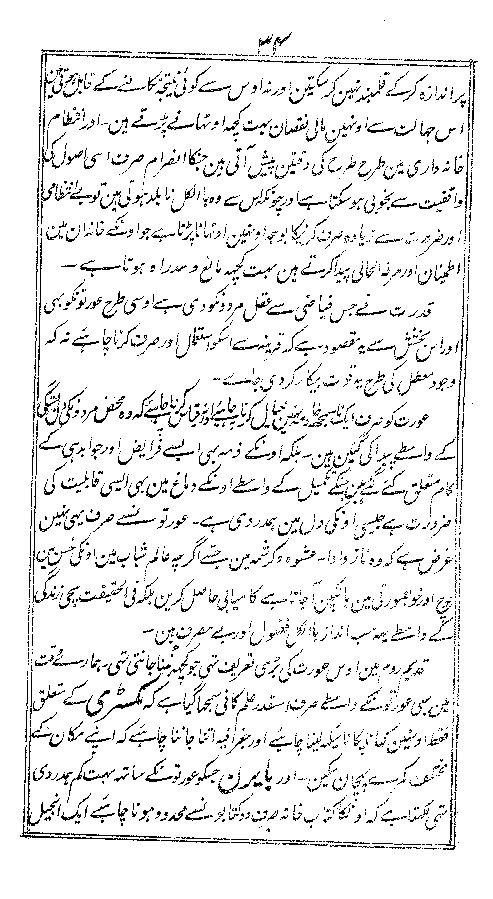 ۳۴
پر اندازہ کرکے قلمبند نہین کرسکتین اور نہ اوس سے کوئی نتیجہ نکالنے کے قابل ہوتی ہین
اس جہالت سے اونہین مالی نقصان بہت کچہہ اوٹھانے پڑتے ہین۔ اور انتظام
خانہ داری مین طرح طرح کی دقتین پیش آتی ہین جنکا انصرام صرف اسی اصول کی
واقفیت سے بخوبی ہوسکتا ہے اور چونکہ اس سے وہ بالکل نابلد ہوتی ہین تو بے انتظامی
اور ضرورت سے زیادہ صرف کرنیکا بوجہہ اونہین اوٹھانا پڑتا ہے جو اونکے خاندان مین
اطمینان اور مرفہ الحالی پیدا کرنے مین بہت کچہہ مانع و سدراہ ہوتا ہے۔
قدرت نے جس فیاضی سے عقل مردونکو دی ہے اوسی طرح عورتونکو بھی
اور اس بخشش سے یہ مقصود ہے کہ قرینہ سے اسکو استعمال اور صرف کرنا چاہئے نہ کہ
وجود معطل کی طرح یہ قوت بیکار کردی جاے۔
عورت کو صرف ایک خیال کرنا چاہئے اور نہ قیاس کرنا چاہئے کہ وہ محض مردونکی دل لگی
کے واسطے پیدا کی گئین ہین۔ بلکہ اونکے ذمہ بھی ایسے فرایض اور جوابدہی کے
کام متعلق کئے گئے ہین جنکے تکمیل کے واسطے اونکے دماغ مین بھی ایسی قابلیت کی
ضرورت ہے جیسی اونکی دل مین ہمدردی ہے۔ عورتونسے صرف یہی نہین
غرض ہے کہ وہ ناز و ادا۔ عشوہ و کرشمہ مین جسے اگرچہ عالم شباب مین اونکی حسن مین
اور خوبصورتی مین بانکپن آجاتا ہے کامیابی حاصل کرین بلکہ فی الحقیقت سچی زندگی
کے واسطے یہ سب انداز بالکل فضول اور بے مصرف ہین۔
قدیم روم مین اوس عورت کی بڑی تعریف تھی جو کچہہ بُننا جانتی تھی۔ ہمارے وقت
مین بھی عورتونکے واسطے صرف اسقدر علم کافی سمجھا گیا ہے کہ کمسٹری کے متعلق
فقط اونہین کھانا پکانا سیکہہ لینا چاہئے اور جغرافیہ اتنا جاننا چاہئے کہ اپنے مکان کے
مختلف کمرے پہچان سکین۔ اور بایرن جسکو عورتونکے ساتھ بہت کم ہمدردی
تھی لکھتا ہے کہ اونکا کتاب خانہ صرف دو کتابونسے محدود ہونا چاہئے ایک انجیل